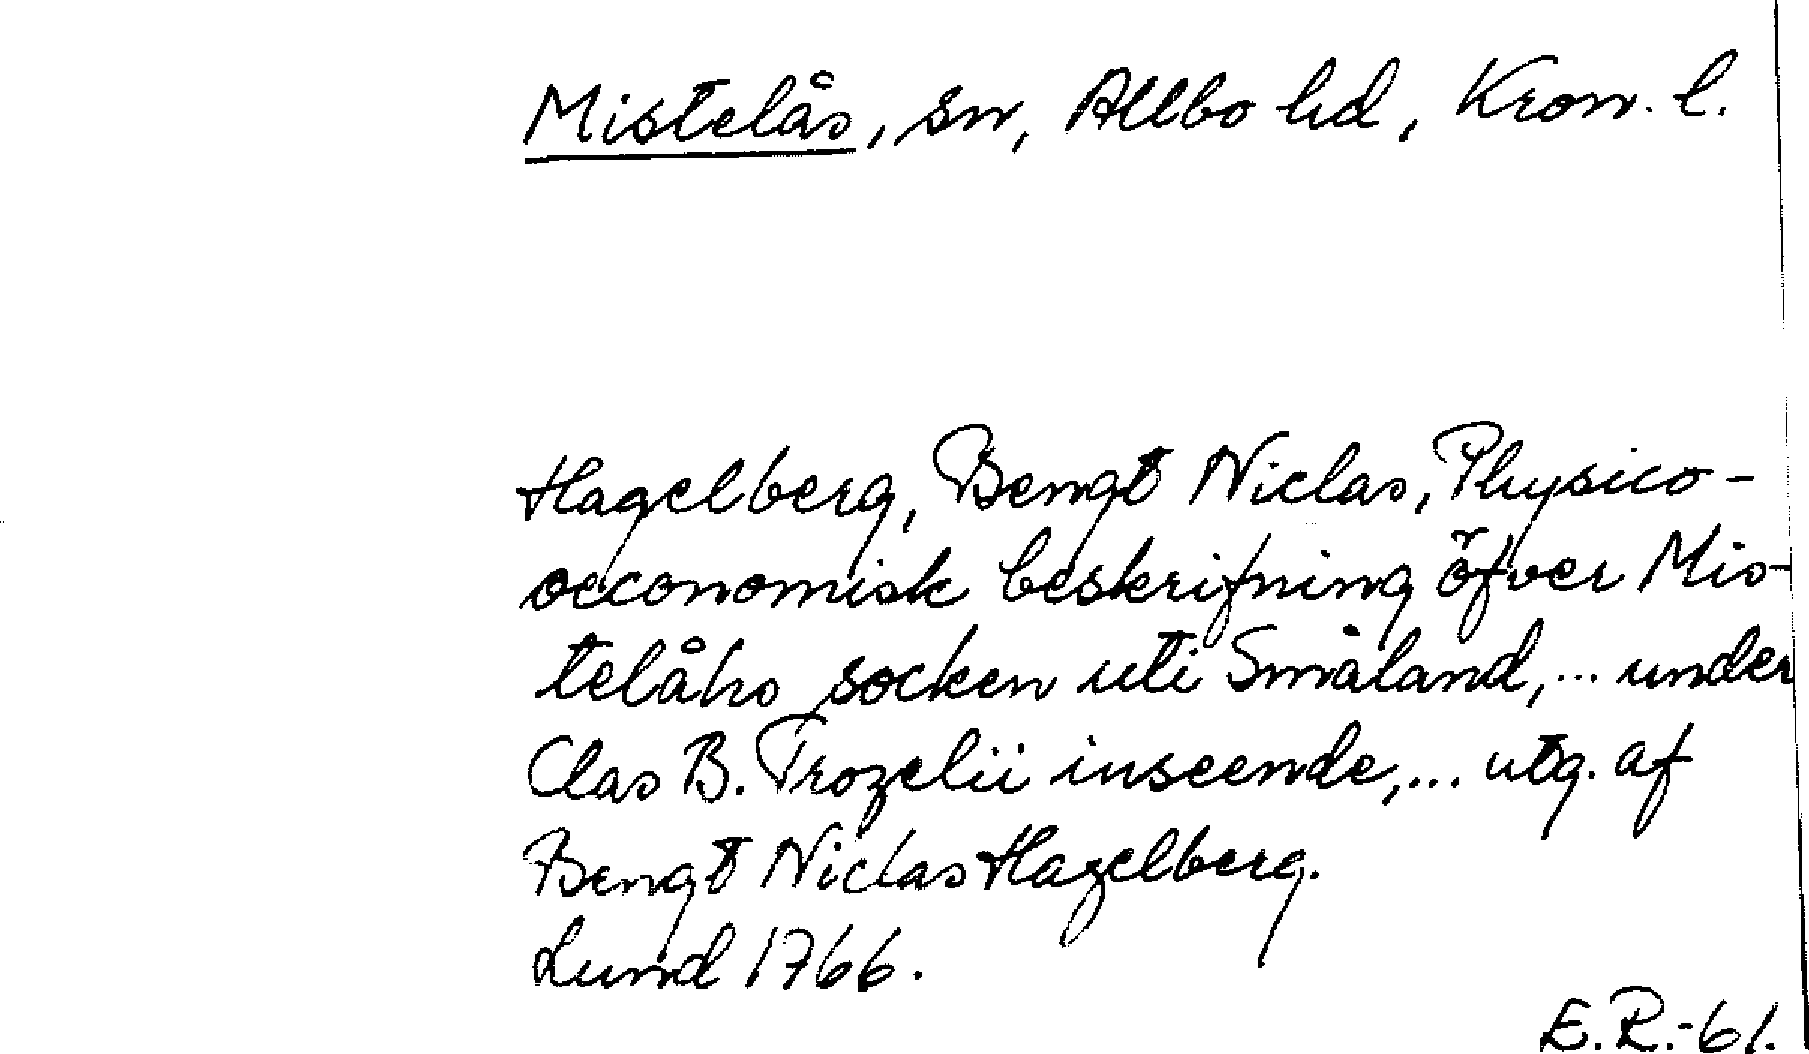 Mistelås, sn, Allbo hd, Kron. l.
Hagelberg, Bengt Niclas, Physico-
oeconomisk beskrifning öfver Mis-
telåhs socken uti Småland,... under
Clas B. Trozelii inseende,... utg. af
Bengt Niclas Hagelberg.
Lund 1766.
E.R.-61.